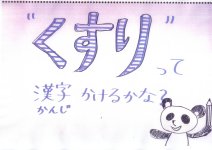 “くすり”って
漢字かけるかな?
かんじ